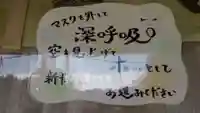 マスクを外して
深呼吸
空を見上げて
ホッとして
新
お進みください